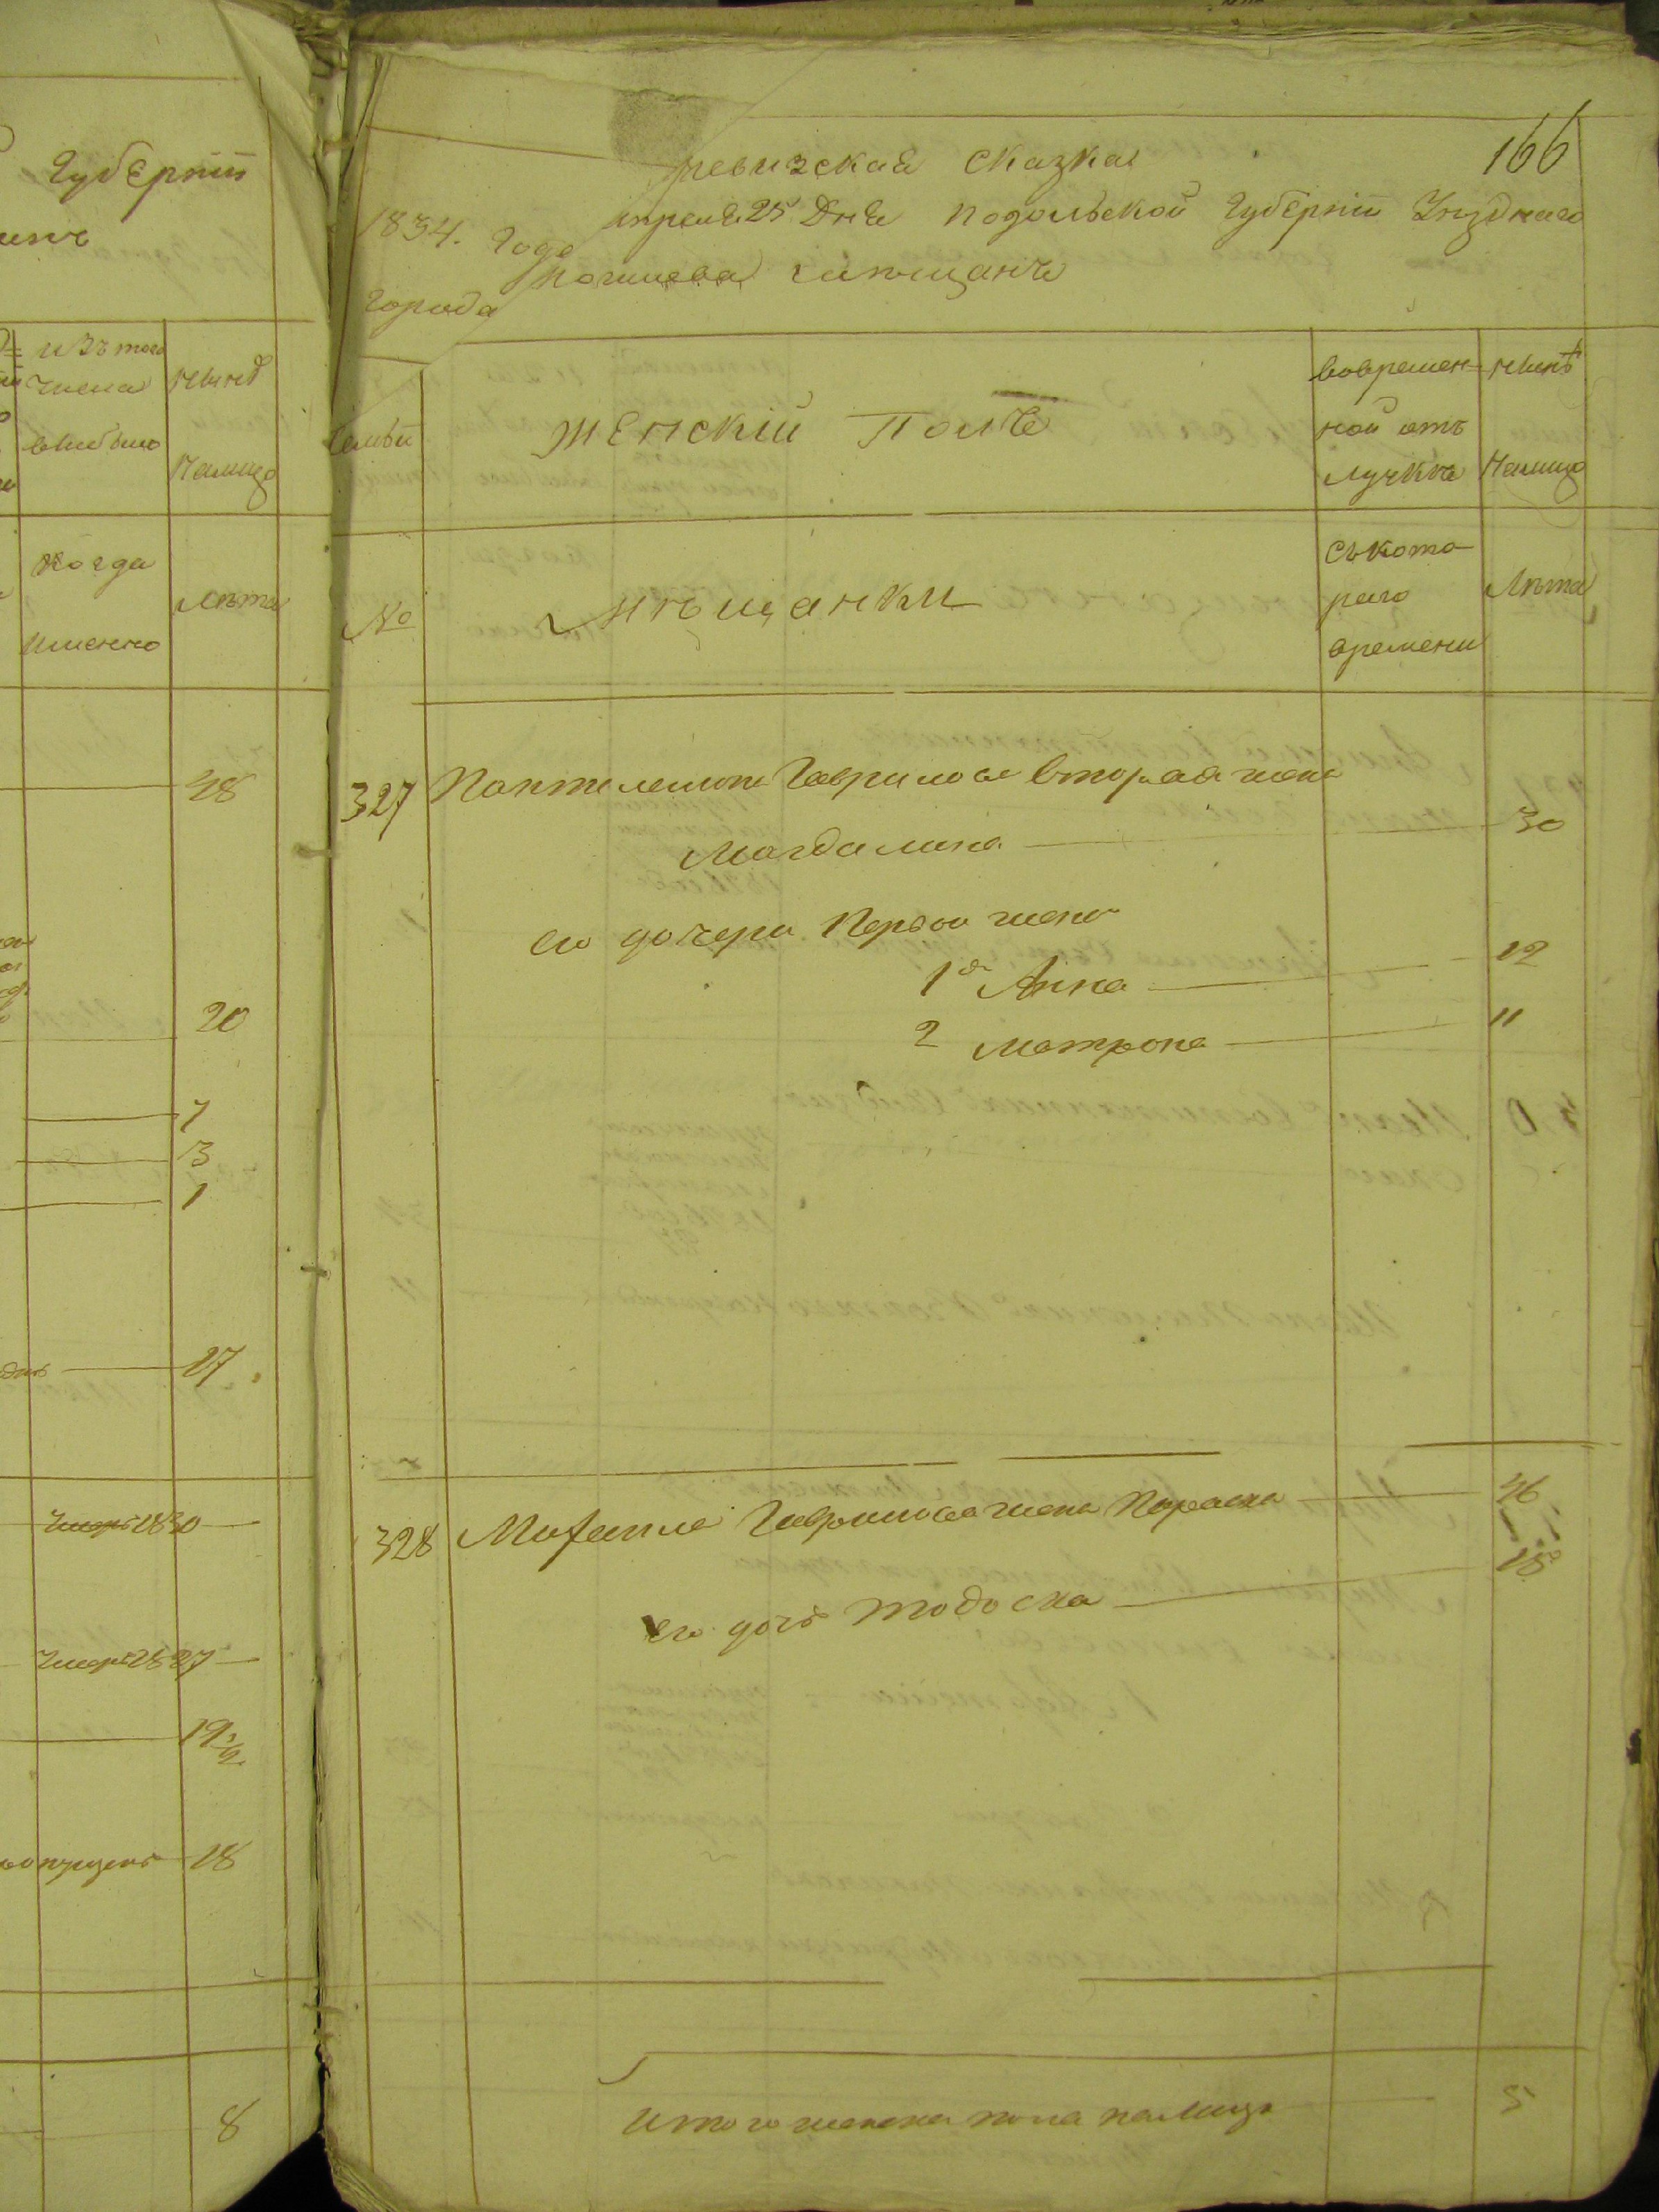 Губернии
изъ того
числа
выбыло
нынѣ
налицо
когда
имянно
лѣта
48
20
7
3
1
27
умеръ 1830
умеръ 1827
19 1/2
18
8
166
Ревизская Сказка
1834. Года апреля 25 Дня Подольской Губернии Уѣзднаго
города Могилева мѣщанъ
Семьи
Женскій Полъ
вовремен-
ной отъ
лучкѣ
нынѣ
налицо
№
мѣщанки
съ кото-
раго
времени
Лѣта
327 Пантелемона Гаврилова вторая жена
Магдалина 30
его дочери Первой жены
1я Анна 12
2 Матрона 11
328 Михаила Гаврилова жена Параска 46
его дочь Тодоска 18
Итого женска пола налицо 5